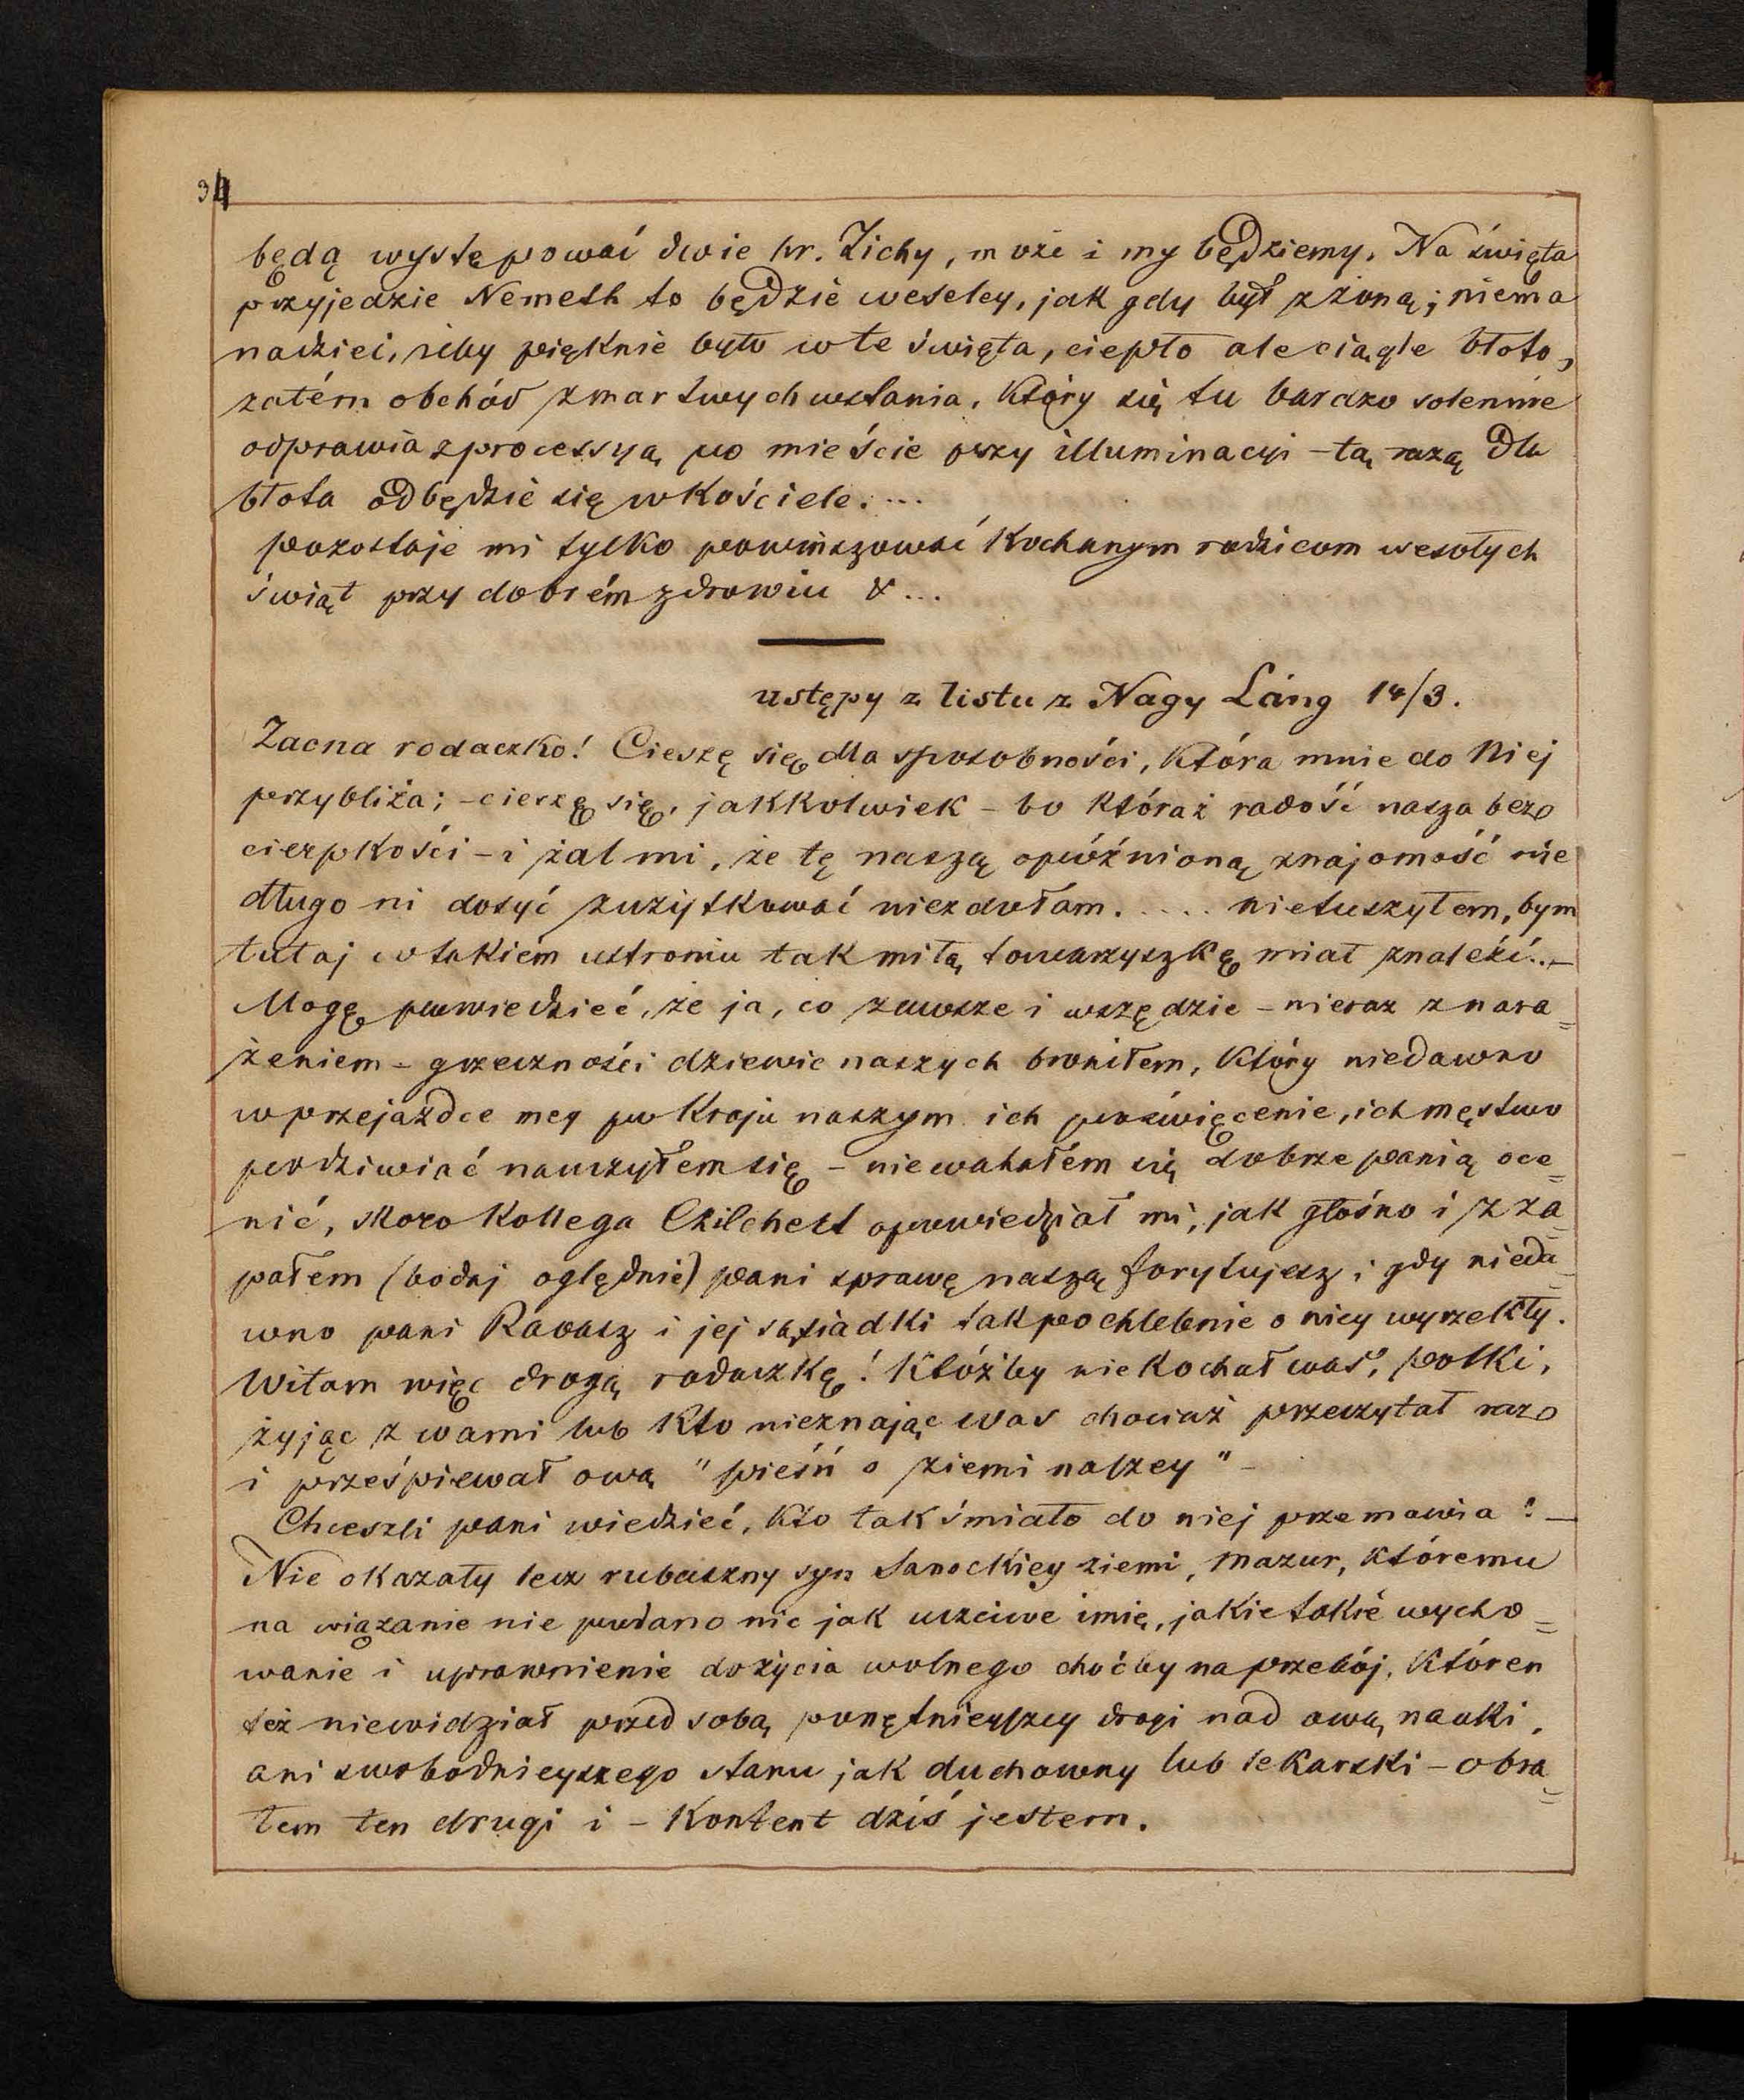 34
będą występować dwie hr. Zichy, może i my będziemy. Na święta
przyjedzie Nemeth to będzie weseley, jak gdy był z żoną; niema
nadziei, żeby pięknie było w te święta, ciepło ale ciągle błoto,
zatém obchód zmartwychwstania, który się tu bardzo solennie
odprawia z processyą po mieście przy illuminacyi – tą razą dla
błota odbędzie się w kościele....
pozostaje mi tylko powinszować kochanym rodzicom wesołych
świąt przy dobrém zdrowiu & ...
ustępy z listu z Nagy Láng 14/3.
Zacna rodaczko! Cieszę się dla sposobności, która mnie do Niej
przybliża; – cieszę się, jakkolwiek – bo któraż radość nasza bez
cierpkości – i żal mi, że tę naszą opóźnioną znajomość nie
długo ni dosyć zużytkować niezdołam..... nietuszyłem, bym
tutaj w takiém ustroniu tak miłą towarzyszkę miał znaleźć..–
Mogę powiedzieć, że ja, co zawsze i wszędzie – nieraz z nara=
żeniem – grzeczności dziewic naszych broniłem, który niedawno
w przejażdce mey po kraju naszym ich poświęcenie, ich męstwo
podziwiać nauczyłem się – niewahałém się dobrze panią oce=
nić, skoro kollega Chilchest opowiedział mi, jak głośno i z za=
pałem (bodaj oględnie) pani sprawę naszą forytujesz i gdy nieda=
wno pani Ravasz i jej sąsiadki tak pochlebnie o niey wyrzekły.
Witam więc drogą rodaczkę! Któżby nie kochał was, polki,
żyjąc z wami lub kto nieznając was chociaż przeczytał raz
i prześpiewał ową "pieśń o ziemi naszey" –
Chceszli pani wiedzieć, kto tak śmiało do niej przemawia? –
Nie okazały lecz rubaszny syn Sanockiey ziemi, mazur, któremu
na wiązanie nie podano nic jak uczciwe imię, jakie takie wycho=
wanie i uprawnienie do życia wolnego choćby na przebój, któren
też niewidział przed sobą ponętnieyszey drogi nad ową nauki,
ani swobodnieyszego stanu jak duchowny lub lekarski – obra=
łem ten drugi i – kontent dziś jestem.